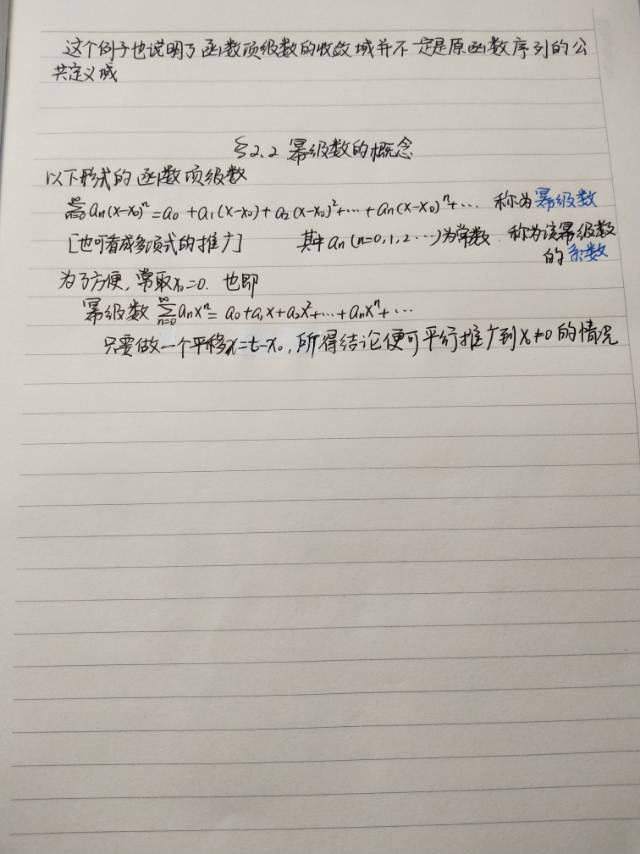 这个例子也说明了函数项级数的收敛域并不一定是原函数序列的公
共定义域
§2.2 幂级数的概念
以下形式的函数项级数
∑_{n=0}^{∞} aₙ(x-x₀)ⁿ = a₀ + a₁(x-x₀) + a₂(x-x₀)² + ⋯ + aₙ(x-x₀)ⁿ + ⋯ 称为幂级数
[也可看成多项式的推广] 其中 aₙ (n=0,1,2⋯) 为常数. 称为该幂级数
的系数
为了方便, 常取x₀=0. 也即
幂级数 ∑_{n=0}^{∞} aₙxⁿ = a₀ + a₁x + a₂x² + ⋯ + aₙxⁿ + ⋯
只要做一个平移x=t-x₀, 所得结论便可平行推广到x₀≠0的情况